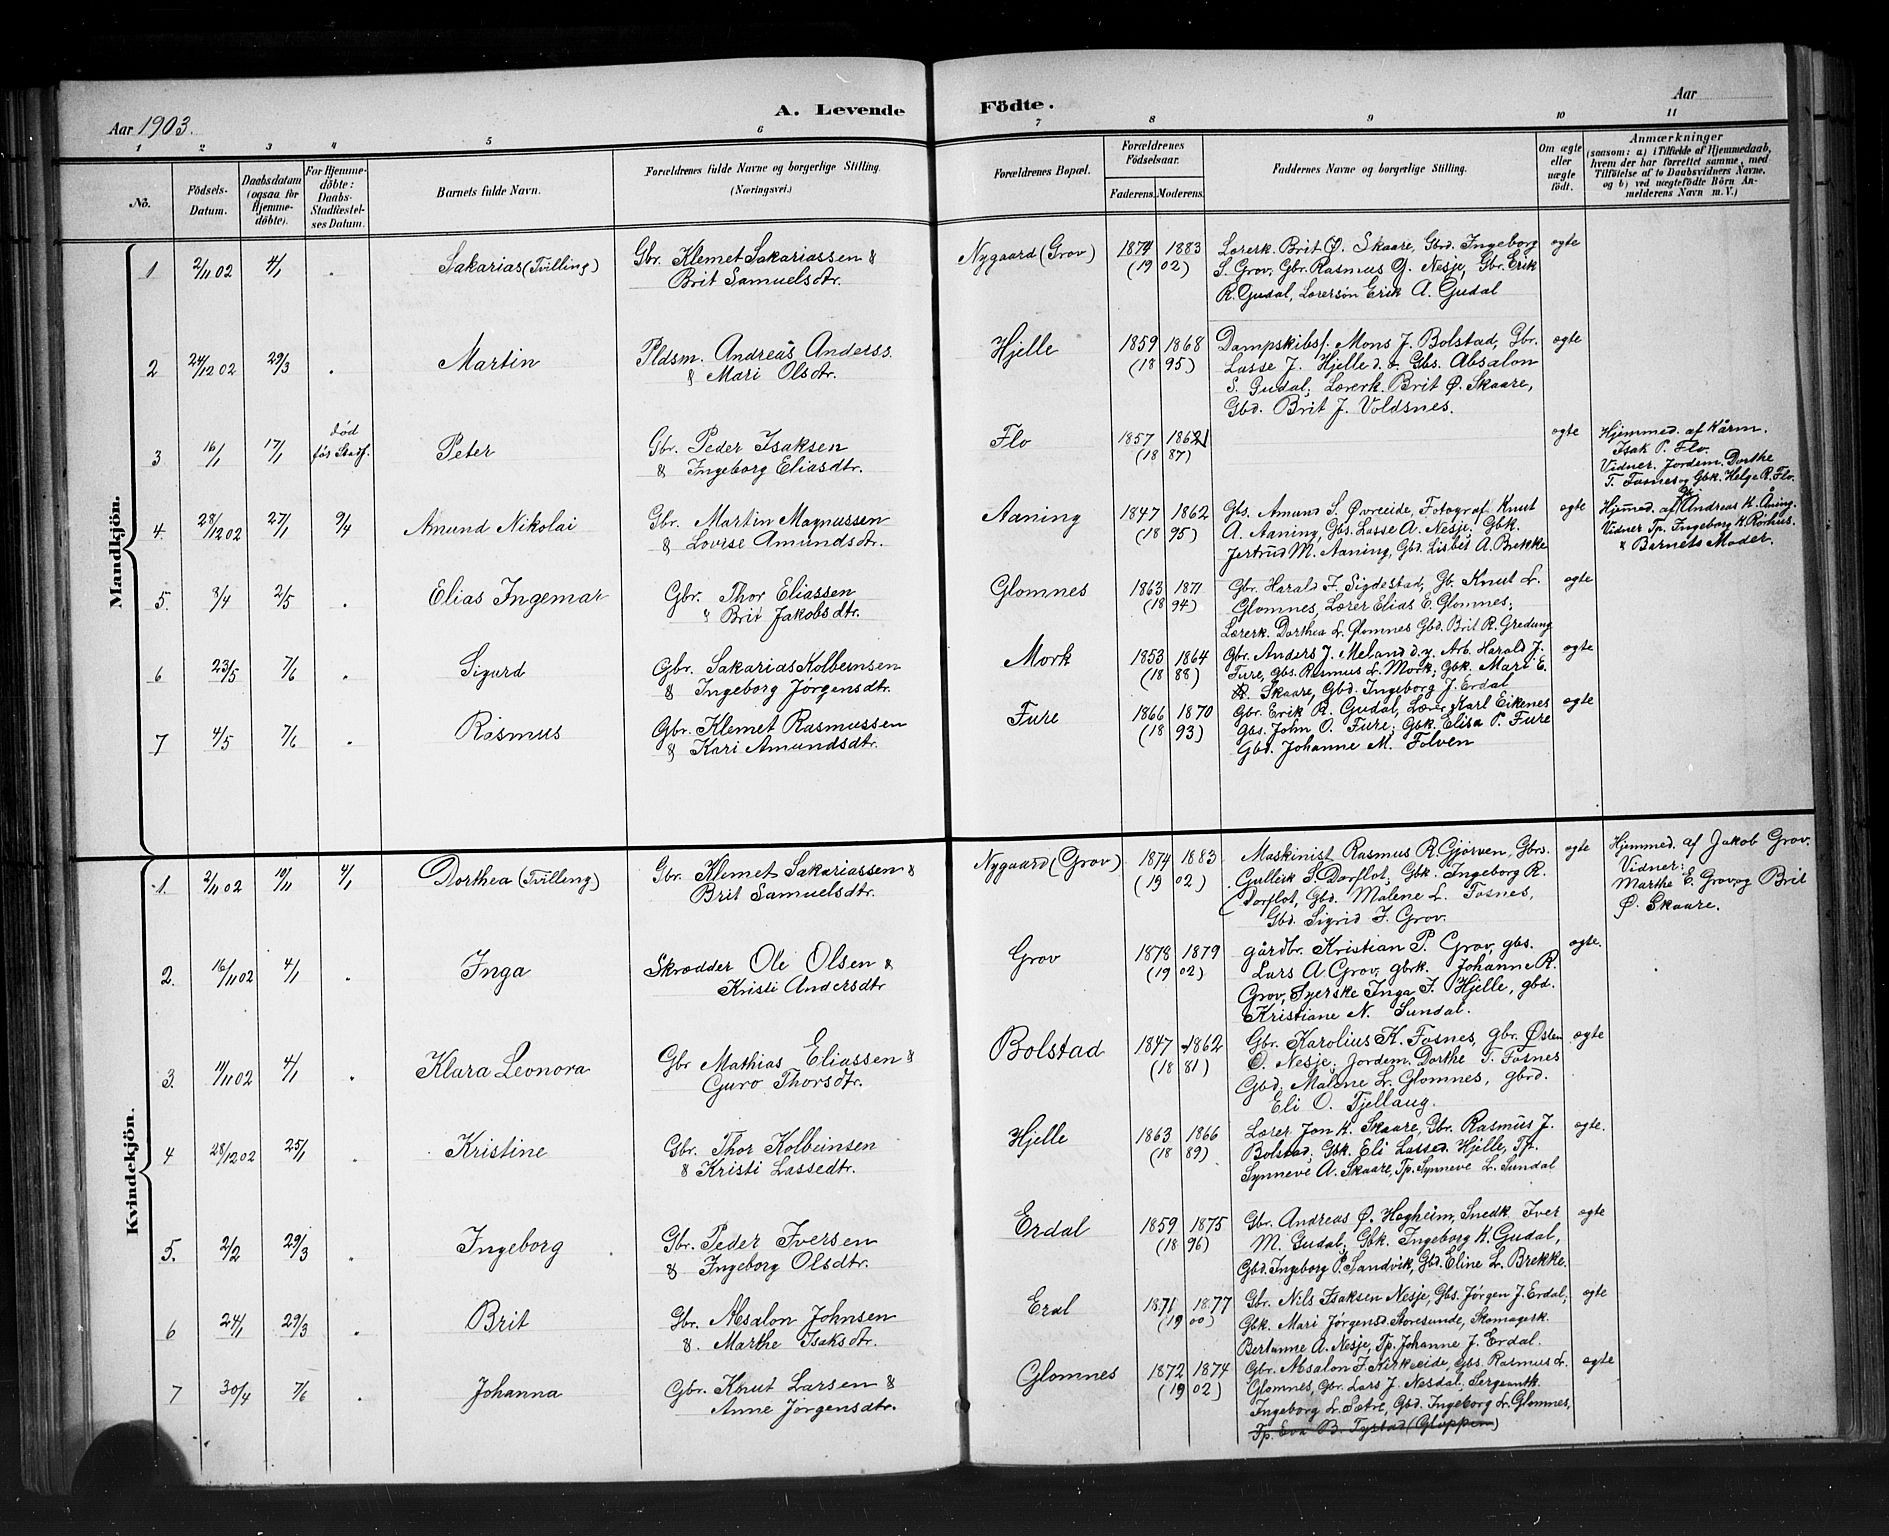 Aar 1903.
A. Levende Födte.
Aar
1 2 3 4 5 6 7 8 9 10 11
No.
Födsels-Datum.
Daabsdatum (ogsaa for Hjemmedöbte).
For Hjemmedöbte: Daabs-Stadfestelses Datum.
Barnets fulde Navn.
Forældrenes fulde Navne og borgerlige Stilling. (Næringsvei.)
Forældrenes Bopæl.
Forældrenes Födselsaar.
Faderens. Moderens.
Faddernes Navne og borgerlige Stilling.
Om ægte eller uægte födt.
Anmærkninger
(saasom: a) i Tilfælde af Hjemmedaab, hvem der har forrettet samme, med Tilföielse af to Daabsvidners Navne, og b) ved uægtefödte Börn Anmelderens Navn m. V.)
Mandkjön.
1 2/11 02 4/1 „ Sakarias (Tvilling)
Gbr. Klemet Sakariassen &
Brit Samuelsdtr.
Nygaard (Grov) 1874 1883
(19 02)
Lærerk. Brit Ø. Skaare, Gbrd. Ingeborg
S. Grov, Gbr. Rasmus O. Nesje, Gbr. Erik
R. Gudal, Lærersøn Erik A. Gudal
ægte
2 24/12 02 29/3 „ Martin
Pldsm. Andreas Anderss.
& Mari Olsdtr.
Hjelle 1859 1868
(18 95)
Dampskibsf. Mons J. Bolstad, Gbr.
Lasse J. Hjelle d.æ. Gbs. Absalon
S. Gudal; Lærerk. Brit Ø. Skaare,
Gbd. Brit J. Voldsnes.
ægte
3 16/1 17/1 død
før Stadf.
Peter
Gbr. Peder Isaksen
& Ingeborg Eliasdtr.
Flo 1857 1862
(18 87)
ægte
Hjemmed. af Kårm.
Isak P. Flo.
Vidner: Jordem. Dorthe
T. Fosnes og Gbk. Helga R. Flo.
4. 28/12 02 27/1 9/4 Amund Nikolai
Gbr. Martin Magnussen
& Lovise Amundsdtr.
Aaning 1847 1862
(18 95)
Gbs. Amund S. Øvreeide, Fotograf Knut
A. Aaning, Gbs. Lasse A. Nesje, Gbk.
Jertrud M. Aaning, Gbd. Lisbet A. Brekke
ægte
Hjemmed. af Gbr. Andreas K. Åning.
Vidner Tp. Ingeborg K. Rørhus.
& Barnets Moder.
5. 3/4 2/5 „ Elias Ingemar
Gbr. Thor Eliassen
„ Brit Jakobsdtr.
Glomnes 1863 1871
(18 94)
Gbr. Harald J. Sigdestad, Gb. Knut L.
Glomnes, Lærer Elias E. Glomnes;
Lærerk. Dorthea L. Glomnes Gbd. Brit R. Gredung
ægte
6 23/5 7/6 „ Sigurd
Gbr. Sakarias Kolbeinsen
& Ingeborg Jørgensdtr.
Mork 1853 1864
(18 88)
Gbr. Anders J. Meland d.y. Arb. Harald J.
Fure, gbs. Rasmus L. Mork; Gbk. Mari E.
Skaare, Gbd. Ingeborg J. Erdal
ægte
7 4/5 7/6 „ Rasmus
Gbr. Klemet Rasmussen
& Kari Amundsdtr.
Fure 1866 1870
(18 93)
Gbr. Erik R. Gudal, Lærer Karl Eikenes
Gbs. John O. Fure; Gbk. Elisa P. Fure
Gbd. Johanne M. Folven
ægte
Kvindekjön.
1. 2/11 02 10/11 4/1 Dorthea (Tvilling)
Gbr. Klemet Sakariassen &
Brit Samuelsdtr.
Nygaard (Grov) 1874 1883
(19 02)
Maskinist Rasmus R. Gjørven, Gbrs.
Gulleik S. Dorflot; Gbk. Ingeborg R.
Dorflot, Gbd. Malene L. Fosnes,
Gbd. Sigrid J. Grov.
ægte
Hjemmed. af Jakob Grov.
Vidner:
Marthe E. Grov og Brit
Ø. Skaare.
2. 16/11 02 4/1 „ Inga
Skrædder Ole Olsen &
Kristi Andersdtr
Grov 1878 1879
(19 02)
gårdbr. Kristian P. Grov, gbs.
Lars A. Grov, gbrk. Johanne R.
Grov, Syerske Inga J. Hjelle, gbd.
Kristiane N. Sundal.
ægte.
3. 11/11 02 4/1 „ Klara Leonora
Gbr Mathias Eliassen &
Guro Thorsdtr.
Bolstad 1847 1862
(18 81)
Gbr. Karolius K. Fosnes, gbr. Østen
O. Nesje; Jordem. Dorthe T. Fosnes
Gbd. Malene L. Glomnes, gbrd.
Eli O. Tjellaug.
ægte
4 28/12 02 25/1 „ Kristine
Gbr. Thor Kolbeinsen
& Kristi Lassedtr.
Hjelle 1863 1866
(18 89)
Lærer Jon K. Skaare, Gbr. Rasmus J.
Bolstad; Gbk. Eli Lassed. Hjelle, Tp.
Synneve A. Skaare, Tp. Synneve L. Sundal
ægte.
5. 2/2 29/3 „ Ingeborg
Gbr. Peder Iversen
& Ingeborg Olsdtr.
Erdal 1859 1875
(18 96)
Gbr. Andreas Ø. Hegheim, Snedk. Iver
M. Gudal; Gbk. Ingeborg K. Gudal,
Gbd. Ingeborg P. Sandvik, Gbd. Eline L. Brekke.
ægte
6 24/1 29/3 „ Brit
Gbr. Absalon Johnsen
& Marthe Isaksdtr.
Eral 1871 1877
(19 00)
Gbr. Nils Isaksen Nesje, Gbs. Jørgen J. Erdal;
Gbk. Mari Jørgensd. Storesunde, Skomagerk.
Bertinne A. Nesje, Tp. Johanne J. Erdal.
ægte
7 30/4 7/6 „ Johanna
Gbr. Knut Larsen &
Anne Jørgensdtr.
Glomnes 1872 1874
(19 02)
Gbr. Absalon J. Kirkeeide, Gbs. Rasmus L.
Glomnes, Gbr. Lars J. Nesdal, Sergeantk.
Ingeborg L. Sætre, Gbd. Ingeborg L. Glomnes,
Tp. Eva B. Tystad (Gloppen)
ægte